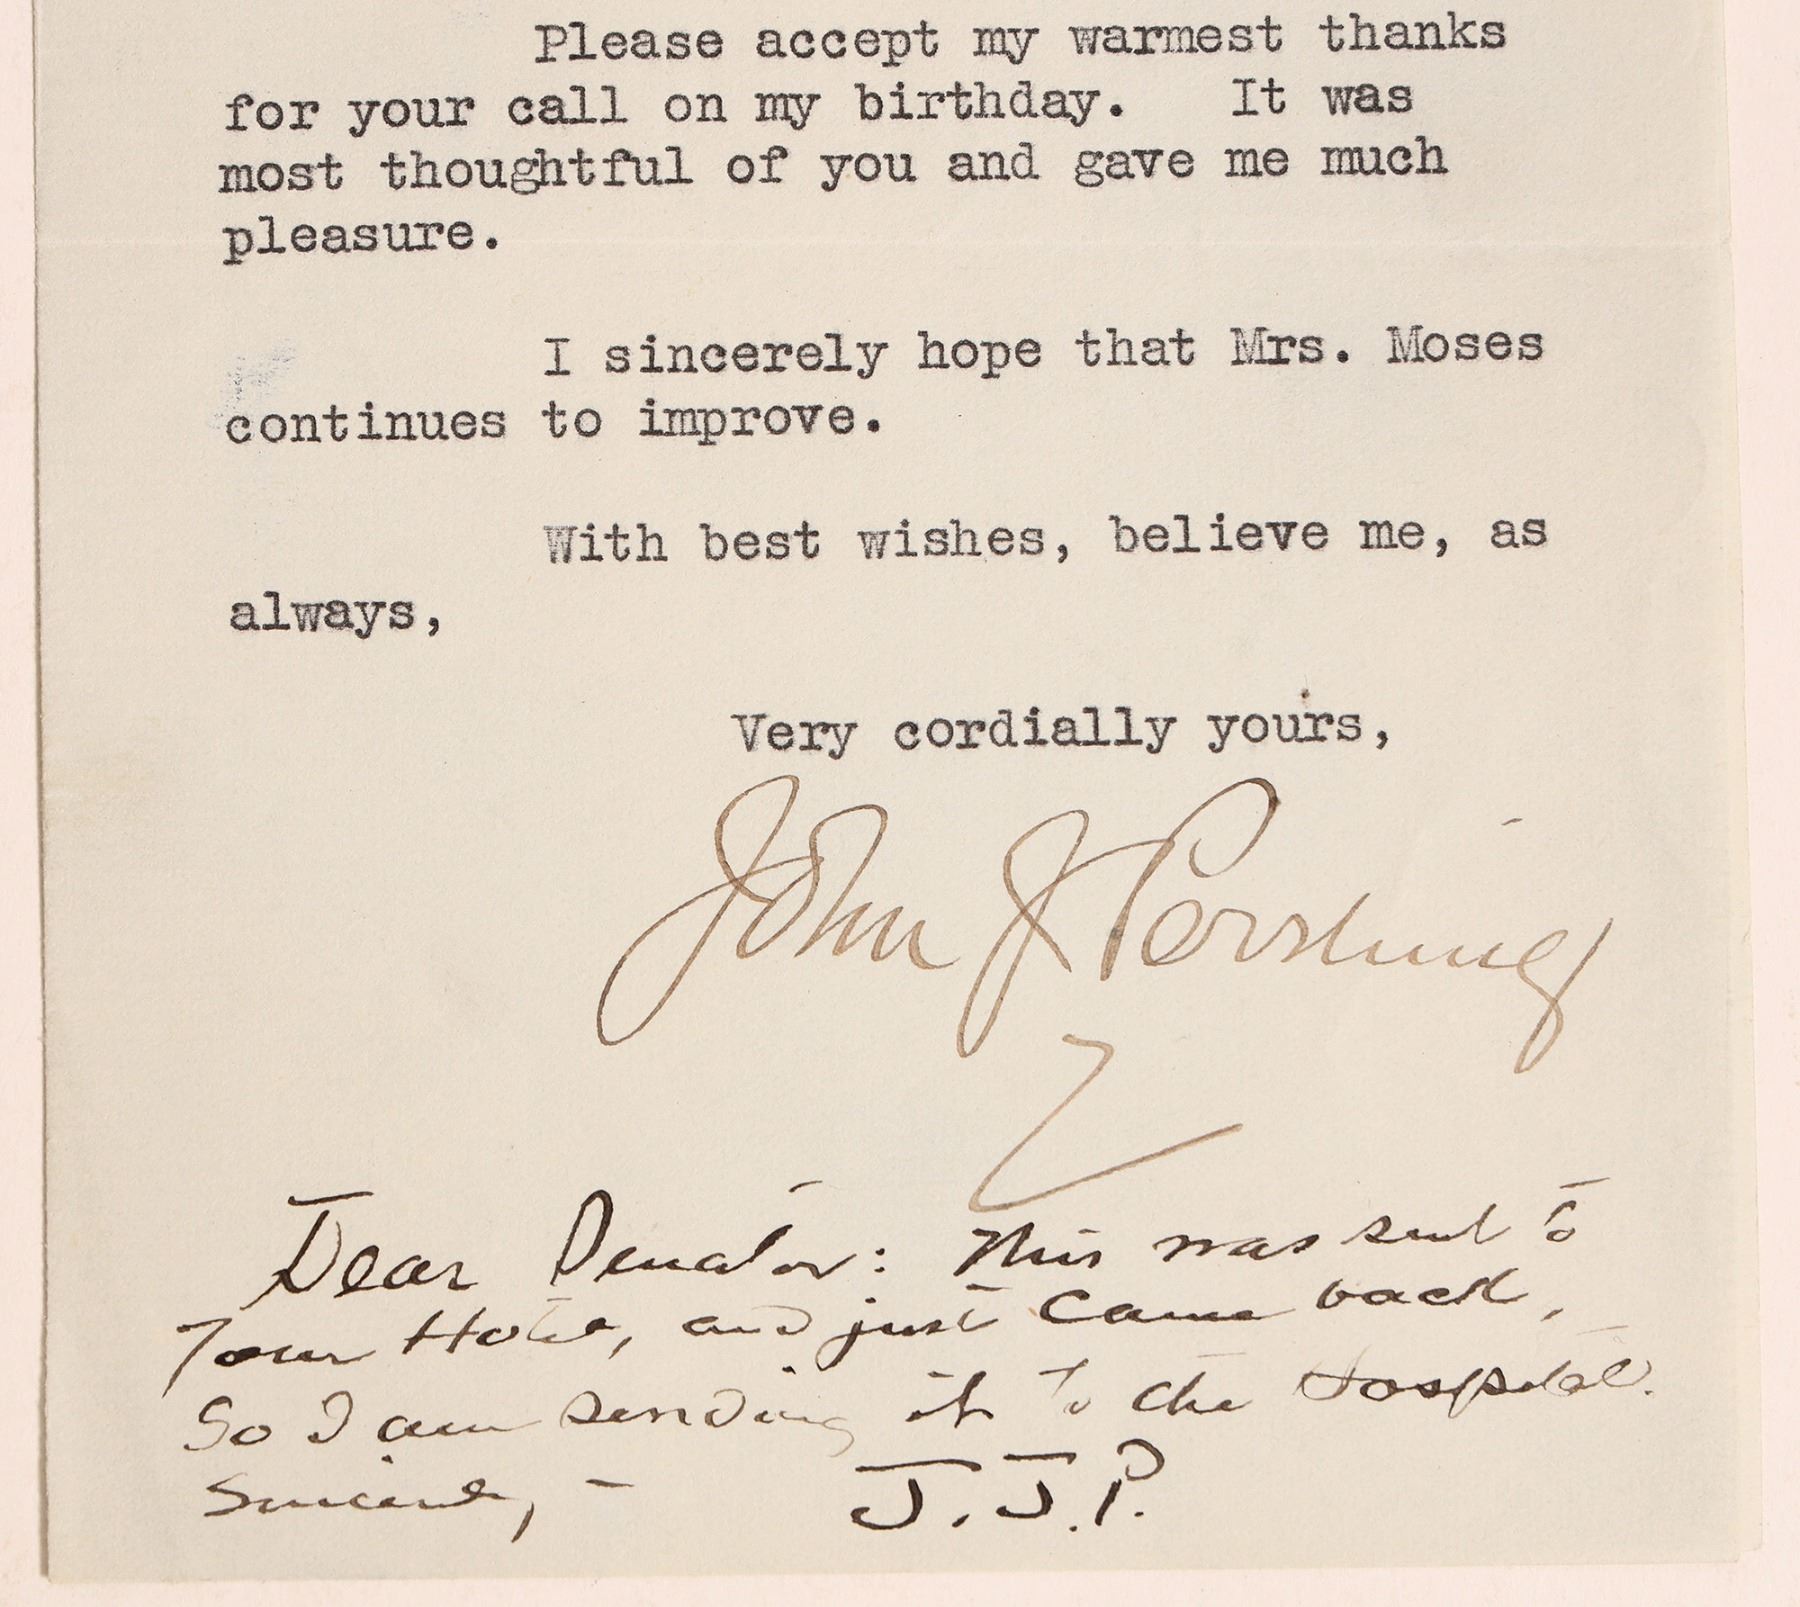 Please accept my warmest thanks
for your call on my birthday. It was
most thoughtful of you and gave me much
pleasure.
I sincerely hope that Mrs. Moses
continues to improve.
With best wishes, believe me, as
always,
Very cordially yours,
John J Pershing
Dear Senator: This was sent to
Your Hotel, and just came back,
So I am sending it to the Hospital.
Sincerely, -   J.J.P.